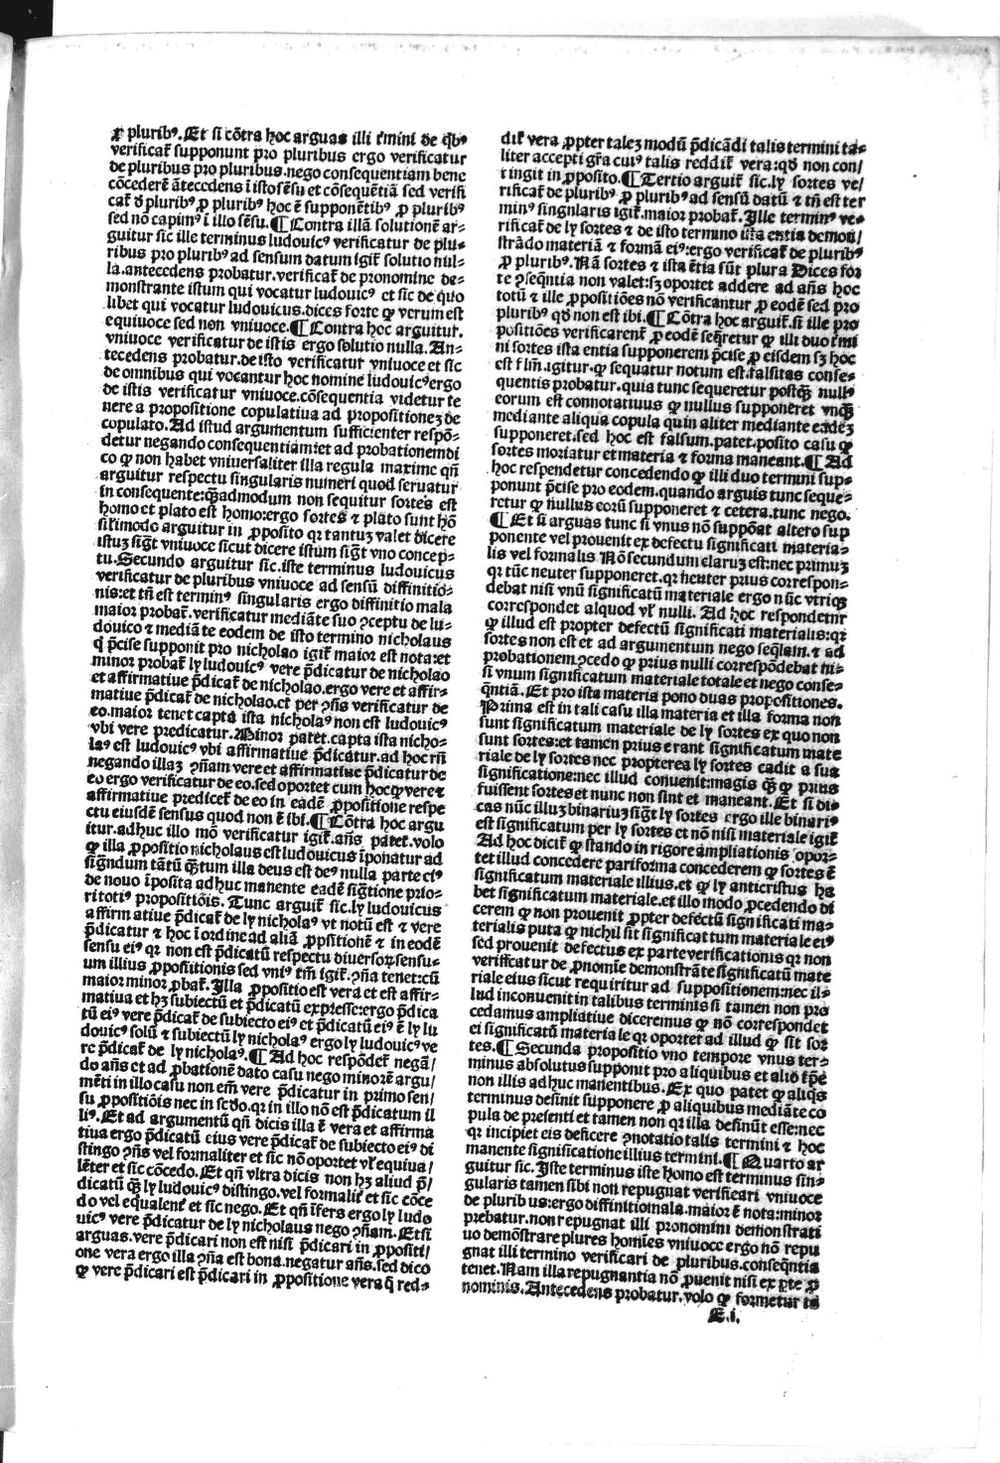 ꝓ pluribꝰ. Et si cõtra hoc arguas illi t̃mini de q̃bꝰ
verificat̃ supponunt pro pluribus ergo verificatur
de pluribus pro pluribus. nego consequentiam bene
cõcederẽ ãtecedens ĩ isto sẽsu et cõsequẽtiã sed verifi
cat̃ d̃ pluribꝰ ꝓ pluribꝰ hoc ẽ supponẽtibꝰ ꝓ pluribꝰ
sed nõ capimꝰ ĩ illo sẽsu. ¶ Contra illã solutionẽ ar-
guitur sic ille terminus ludouicꝰ verificatur de plu-
ribus pro pluribꝰ ad sensum datum igit̃ solutio nul-
la. antecedens probatur. verificat̃ de pronomine de-
monstrante istum qui vocatur ludouicꝰ et sic de quo
libet qui vocatur ludouicus. dices forte ꝙ verum est
equiuoce sed non vniuoce. ¶ Contra hoc arguitur.
vniuoce verificatur de istis ergo solutio nulla. An-
tecedens probatur. de isto verificatur vniuoce et sic
de omnibus qui vocantur hoc nomine ludouicꝰ ergo
de istis verificatur vniuoce. cõsequentia videtur te
nere a propositione copulatiua ad propositioneʒ de
copulato. Ad istud argumentum sufficienter respõ-
detur negando consequentiam: et ad probationem di
co ꝙ non habet vniuersaliter illa regula maxime qñ
arguitur respectu singularis numeri quod seruatur
in consequente: q̃admodum non sequitur sortes est
homo et plato est homo: ergo sortes ⁊ plato sunt hõ
sil̃imodo arguitur in ꝓposito qꝛ tantuʒ valet dicere
istuʒ sigt̃ vniuoce sicut dicere istum sigt̃ vno concep-
tu. Secundo arguitur sic. iste terminus ludouicus
verificatur de pluribus vniuoce ad sensũ diffinitio-
nis: et tñ est terminꝰ singularis ergo diffinitio mala
maior probat̃. verificatur mediãte suo ꝯceptu de lu-
douico ⁊ mediãte eodem de isto termino nicholaus
q̃ p̃cise supponit pro nicholao igit̃ maior est nota: et
minor probat̃ ly ludouicꝰ vere p̃dicatur de nicholao
et affirmatiue p̃dicat̃ de nicholao. ergo vere et affir-
matiue p̃dicat̃ de nicholao. et per ꝯñs verificatur de
eo. maior tenet capta ista nicholaꝰ non est ludouicꝰ
vbi vere predicatur. Minor patet. capta ista nicho-
laꝰ est ludouicꝰ vbi affirmatiue p̃dicatur. ad hoc rñ
negando illaʒ ꝯñam vere et affirmatiue p̃dicatur de
eo ergo verificatur de eo. sed oportet cum hoc ꝙ vere ⁊
affirmatiue predicet̃ de eo in eadẽ ꝓpositione respe
ctu eiusdẽ sensus quod non ẽ ibi. ¶ Cõtra hoc argu
itur. adhuc illo mõ verificatur igit̃. añs patet. volo
ꝙ illa ꝓpositio nicholaus est ludouicus ĩponatur ad
sigñdum tãtũ q̃tum illa deus est deꝰ nulla parte eiꝰ
de nouo ĩposita adhuc manente eadẽ sigñtione prio-
ritotiꝰ propositiõis. Tunc arguit̃ sic. ly ludouicus
affirmatiue p̃dicat̃ de ly nicholaꝰ vt notũ est ⁊ vere
p̃dicatur ⁊ hoc ĩ ordine ad aliã ꝓpsitionẽ ⁊ in eodẽ
sensu eiꝰ qꝛ non est p̃dicatũ respectu diuersoꝝ sensu-
um illius ꝓpositionis sed vniꝰ tm̃ igit̃. ꝯña tenet: cũ
maior minor ꝓbat̃. Illa ꝓpositio est vera et est affir-
matiua et hʒ subiectũ et p̃dicatũ exp̃sse: ergo p̃dica
tũ eiꝰ vere p̃dicat̃ de subiecto eiꝰ et p̃dicatũ eiꝰ ẽ ly lu
douicꝰ solũ ⁊ subiectũ ly nicholaꝰ ergo ly ludouicꝰ ve
re p̃dicat̃ de ly nicholaꝰ. ¶ Ad hoc respõdet̃ negã/
do añs et ad ꝓbationẽ dato casu nego minorẽ argu/
mẽti in illo casu non em̃ vere p̃dicatur in primo sen/
su ꝓpositiõis nec in scd̃o. qꝛ in illo nõ est p̃dicatum il
liꝰ. Et ad argumentũ qñ dicis illa ẽ vera et affirma
tiua ergo p̃dicatũ eius vere p̃dicat̃ de subiecto eiꝰ di
stingo ꝯñs vel formaliter et sic nõ oportet vl̃ equiua/
lẽter et sic cõcedo. Et qñ vltra dicis non hʒ aliud p̃/
dicatũ q̃ʒ ly ludouicꝰ distingo. vel formalit̃ et sic cõce
do vel equalent̃ et sic nego. Et qñ ĩfers ergo ly ludo
uicꝰ vere p̃dicatur de ly nicholaus nego ꝯñam. Et si
arguas. vere p̃dicari non est nisi p̃dicari in ꝓpositi/
one vera ergo illa ꝯña est bona. negatur añs. sed dico
ꝙ vere p̃dicari est p̃dicari in ꝓpositione vera q̃ red-
dit̃ vera ꝓpter taleʒ modũ p̃dicãdi talis termini ta-
liter accepti gr̃a cuiꝰ talis reddit̃ vera: qd̃ non con/
tingit in ꝓposito. ¶ Tertio arguit̃ sic. ly sortes ve/
rificat̃ de pluribꝰ ꝓ pluribꝰ ad sensũ datũ ⁊ tñ est ter
minꝰ singularis igit̃. maior probat̃. Ille terminꝰ ve-
rificat̃ de ly sortes ⁊ de isto termino ista entia demon/
strãdo materiã ⁊ formã eiꝰ: ergo verificat̃ de pluribꝰ
ꝓ pluribꝰ. Nã sortes ⁊ ista ẽtia sũt plura Dices for
te ꝯseq̃ntia non valet: sʒ oportet addere ad añs hoc
totũ ⁊ ille ꝓpositiões nõ verificantur ꝓ eodẽ sed pro
pluribꝰ qd̃ non est ibi. ¶ Cõtra hoc arguit̃. si ille pro
positiões verificarent̃ ꝓ eodẽ seq̃retur ꝙ illi duo t̃mi
ni sortes ista entia supponerent p̃cise ꝓ eisdem sʒ hoc
est fl̃m. igitur. ꝙ sequatur notum est. falsitas conse-
quentis probatur. quia tunc sequeretur postq̃ʒ nullꝰ
eorum est connotatiuus ꝙ nullus supponeret vnq̃ʒ
mediante aliqua copula quin aliter mediante eadeʒ
supponeret. sed hoc est falsum. patet. posito casu ꝙ
sortes moriatur et materia ⁊ forma maneant. ¶ Ad
hoc respendetur concedendo ꝙ illi duo termini sup-
ponunt p̃cise pro eodem. quando arguis tunc seque-
retur ꝙ nullus eorũ supponeret ⁊ cetera. tunc nego.
¶ Et si arguas tunc si vnus nõ suppõat altero sup
ponente vel prouenit ex defectu significati materia-
lis vel formalis Nõ secundum claruʒ est: nec primuʒ
qꝛ tũc neuter supponeret. qꝛ neuter prius correspon-
debat nisi vnũ significatũ materiale ergo nũc vtriqʒ
correspondet aliquod vl̃ nulli. Ad hoc respondetur
ꝙ illud est propter defectũ significati materialis: qꝛ
sortes non est et ad argumentum nego seq̃lam. ⁊ ad
probationem ꝯcedo ꝙ prius nulli correspõdebat ni-
si vnum significatum materiale totale et nego conse-
q̃ntiã. Et pro ista materia pono duas propositiones.
Prima est in tali casu illa materia et illa forma non
sunt significatum materiale de ly sortes ex quo non
sunt sortes: et tamen prius erant significatum mate
riale de ly sortes nec propterea ly sortes cadit a sua
significatione: nec illud conuenit: magis q̃ʒ ꝙ prius
fuissent sortes et nunc non sint et maneant. Et si di-
cas nũc illuʒ binariuʒ sigt̃ ly sortes ergo ille binariꝰ
est significatum per ly sortes et nõ nisi materiale igit̃
Ad hoc dicit̃ ꝙ stando in rigore ampliationis opor-
tet illud concedere pariforma concederem ꝙ sortes ẽ
significatum materiale illius. et ꝙ ly anticristus ha
bet significatum materiale. et illo modo ꝓcedendo di
cerem ꝙ non prouenit ꝓpter defectũ significati ma-
terialis puta ꝙ nichil sit significattum materiale eiꝰ
sed prouenit defectus ex parte verificationis qꝛ non
verificatur de ꝓnomĩe demonstrãte significatũ mate
riale eius sicut requiritur ad suppositionem: nec il-
lud inconuenit in talibus terminis si tamen non pro
cedamus ampliatiue diceremus ꝙ nõ correspondet
ei significatũ materiale qꝛ oportet ad illud ꝙ sit sor
tes. ¶ Secunda propositio vno tempore vnus ter-
minus absolutus supponit pro aliquibus et alio t̃pẽ
non illis adhuc manentibus. Ex quo patet ꝙ aliq̃s
terminus desinit supponere ꝓ aliquibus mediãte co
pula de presenti et tamen non qꝛ illa desinũt esse: nec
qꝛ incipiet eis deficere ꝯnotatio talis termini ⁊ hoc
manente significatione illius termini. ¶ Quarto ar
guitur sic. Iste terminus iste homo est terminus sin-
gularis tamen sibi non repugnat verificari vniuoce
de pluribus: ergo diffinitio mala. maior ẽ nota: minor
prebatur. non repugnat illi pronomini demonstrati
uo demõstrare plures homĩes vniuoce ergo nõ repu
gnat illi termino verificari de pluribus. conseq̃ntia
tenet. Nam illa repugnantia nõ ꝓuenit nisi ex ꝑte ꝓ
nominis. Antecedens probatur. volo ꝙ formetur tũ
E.i.